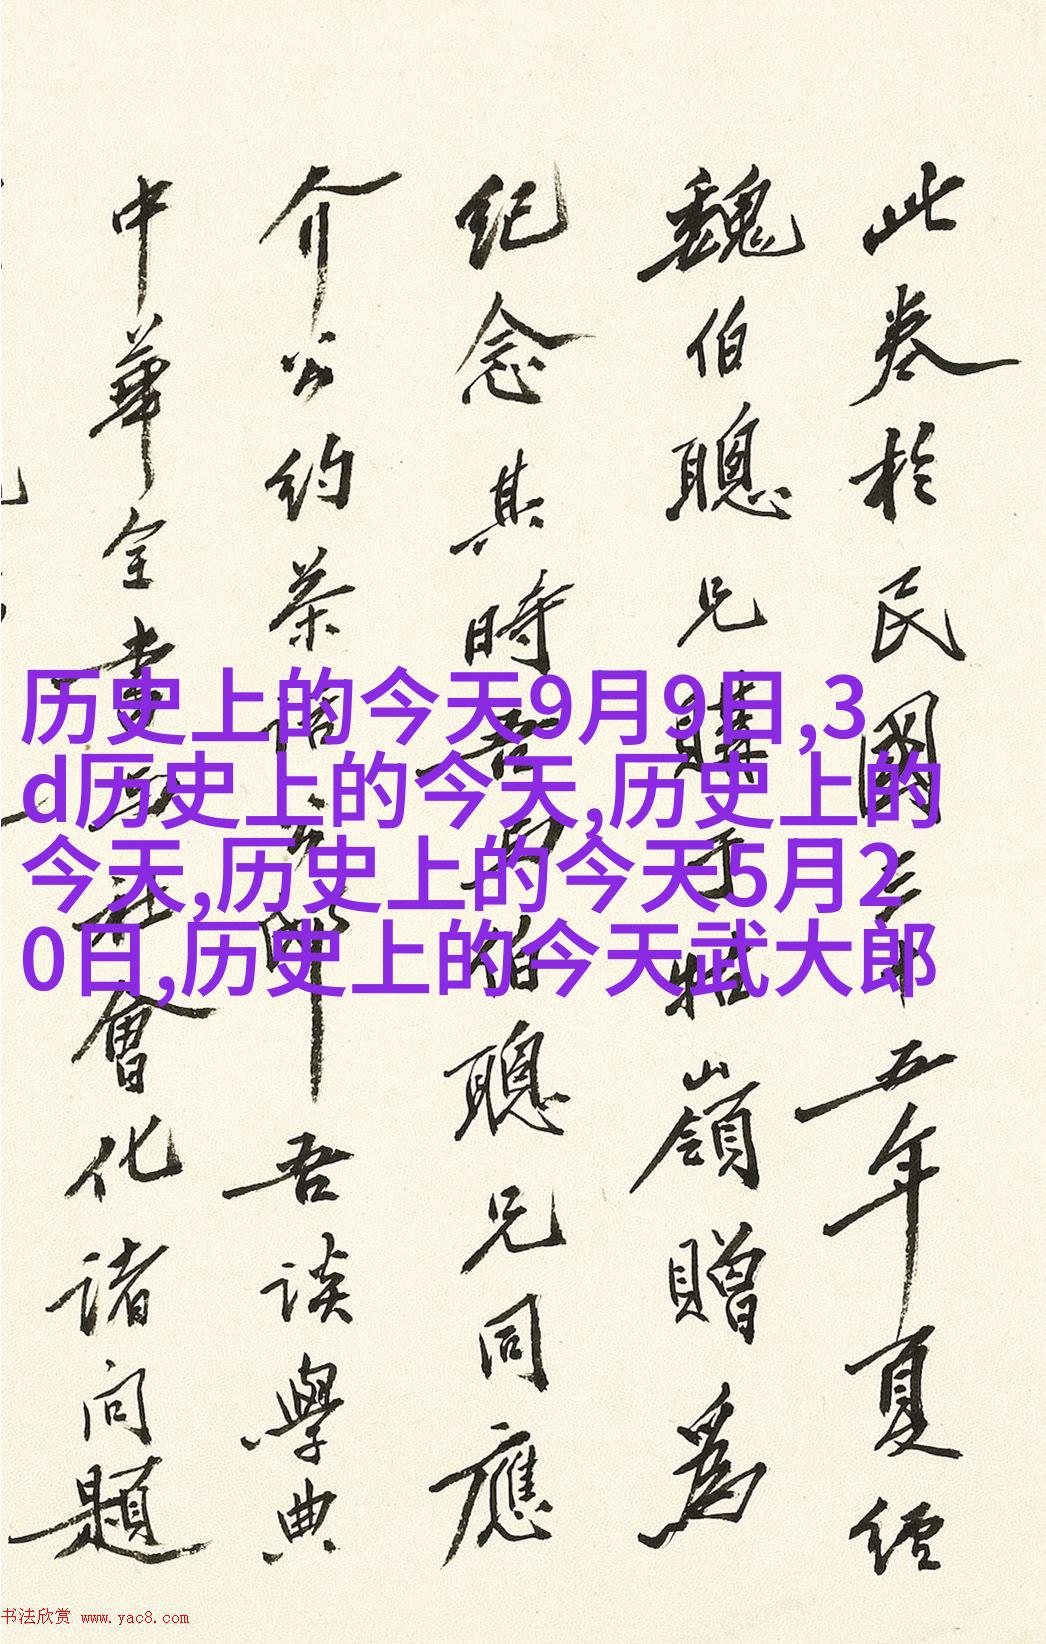 此卷於民國三十五年夏經
魏伯聰兄購于牯嶺贈為
紀念其時吾與伯聰兄同應
介公約茶
吾談學典
中華全書與社會化諸问題
历史上的今天9月9日,3
d历史上的今天,历史上的
今天,历史上的今天5月2
0日,历史上的今天武大郎
书法欣赏 www.yac8.com